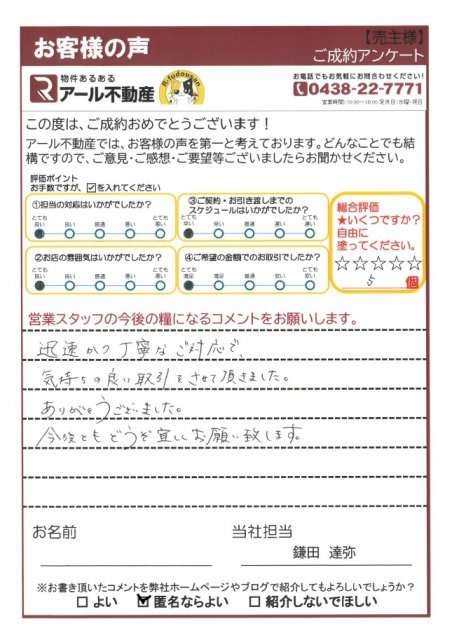 お客様の声
【売主様】
ご成約アンケート
R.fudousan
物件あるある
アール不動産
お電話でもお気軽にお問合わせください!
0438-22-7771
営業時間:10:00〜18:00 定休日:水曜・祝日
この度は、ご成約おめでとうございます!
アール不動産では、お客様の声を第一と考えております。どんなことでも結
構ですので、ご意見・ご感想・ご要望等ございましたらお聞かせください。
評価ポイント
お手数ですが、☑を入れてください
①担当の対応はいかがでしたか?
とても良い 良い 普通 悪い とても悪い
③ご契約・お引き渡しまでの
スケジュールはいかがでしたか?
とても早い 早い 普通 遅い とても遅い
②お店の雰囲気はいかがでしたか?
とても良い 良い 普通 悪い とても悪い
④ご希望の金額でのお取引でしたか?
とても満足 満足 普通 安い とても安い
総合評価
★いくつですか?
自由に
塗ってください。
☆☆☆☆☆
5 個
営業スタッフの今後の糧になるコメントをお願いします。
迅速かつ丁寧なご対応で、
気持ちの良い取引をさせて頂きました。
ありがとうございました。
今後ともどうぞ宜しくお願い致します。
お名前
当社担当
鎌田 達弥
※お書き頂いたコメントを弊社ホームページやブログで紹介してもよろしいでしょうか?
□ よい ☑ 匿名ならよい □ 紹介しないでほしい